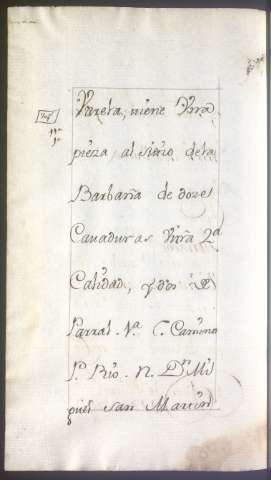 Varela, tiene Una
pieza, al sitio dela
Barbaña de doze
Cauaduras Viña 2ª
Calidad, y dos de
Parral. Nª. C. Camino
Pº. Rio. N. Dn Mi
guel san Martin